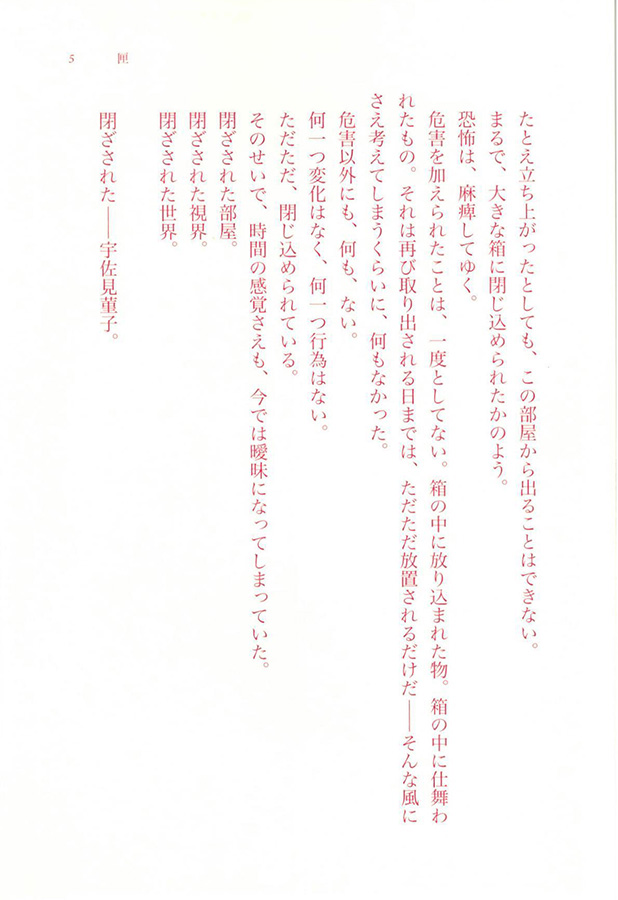 たとえ立ち上がったとしても、この部屋から出ることはできない。
まるで、大きな箱に閉じ込められたかのよう。
恐怖は、麻痺してゆく。
危害を加えられたことは、一度としてない。箱の中に放り込まれた物。箱の中に仕舞わ
れたもの。それは再び取り出される日までは、ただただ放置されるだけだ――そんな風に
さえ考えてしまうくらいに、何もなかった。
危害以外にも、何も、ない。
何一つ変化はなく、何一つ行為はない。
ただただ、閉じ込められている。
そのせいで、時間の感覚さえも、今では曖昧になってしまっていた。
閉ざされた部屋。
閉ざされた視界。
閉ざされた世界。
閉ざされた――宇佐見菫子。
5 匣